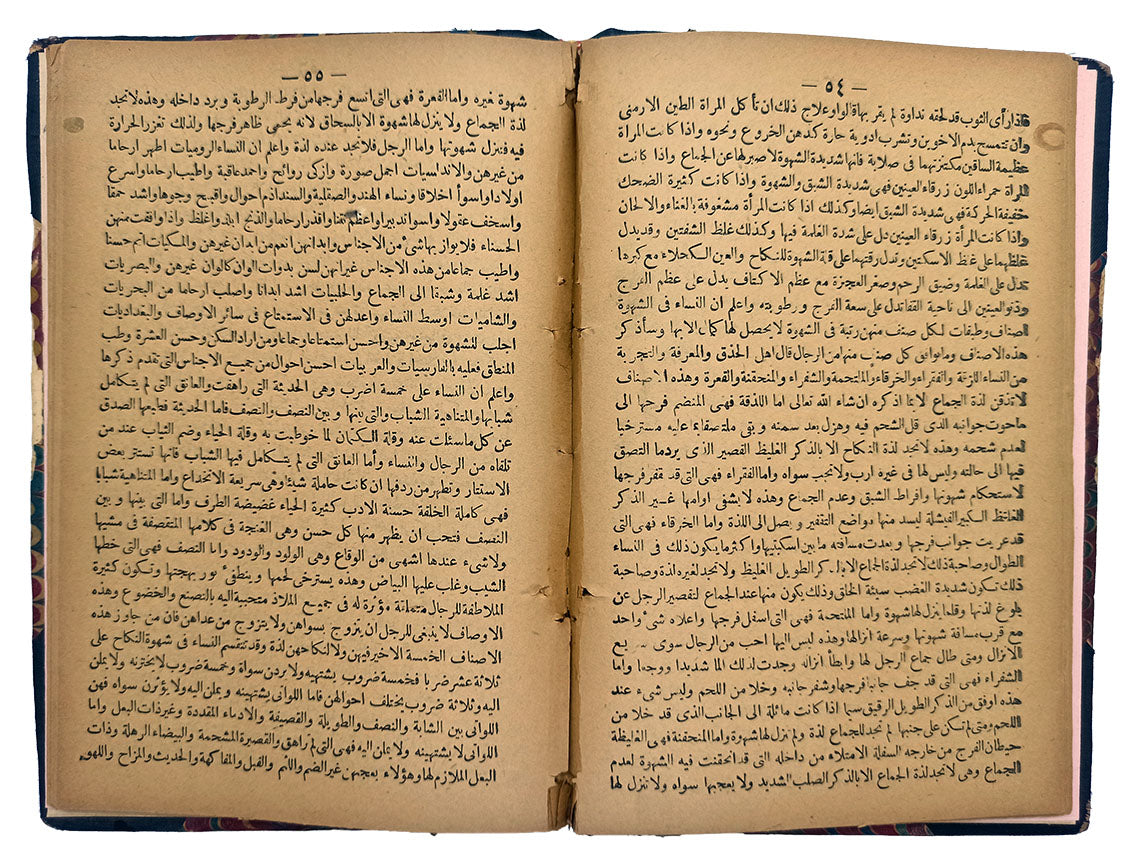 — ٥٤ —
فاذا رأى الثوب قد لحقه نداوة لم يقربها قالوا وعلاج ذلك ان تأكل المراة الطين الارمنى
وان تتمسح بدم الاخوين وتشرب ادوية حارة كدهن الخروع ونحوه واذا كانت المراة
عظيمة الساقين مكتنزتهما فى صلابة فانها شديدة الشهوة لاصبر لها عن الجماع واذا كانت
المراة حمراء اللون زرقاء العينين فهى شديدة الشبق والشهوة واذا كانت كثيرة الضحك
خفيفة الحركة فهى شديدة الشبق ايضا وكذلك اذا كانت المرأة مشغوفة بالغناء والالحان
واذا كانت المرأة زرقاء العينين دل على شدة الغلمة فيها وكذلك غلظ الشفتين وقد يدل
غلظهما على غلظ الاسكتين وتدل رقتهما على قلة الشهوة للنكاح والعين الكحلاء مع كبرها
تدل على الغلمة وضيق الرحم وصغر العجيزة مع عظم الاكتاف يدل على عظم الفرج
ونتو العينين الى ناحية القفا تدل على سعة الفرج ورطوبته واعلم ان النساء فى الشهوة
اصناف وطبقات لكل صنف منهن رتبة فى الشهوة لايحصل لها كمال الا بها وسأذكر
هذه الاصناف وما يوافق كل صنف منها من الرجال قال اهل الحذق والمعرفة والتجربة
من النساء اللزقة والفقراء والخرقاء والملتحمة والشفراء والمنحفنة والقعرة وهذه الاصناف
لا تذقن لذة الجماع الا بما اذكره ان شاء الله تعالى اما اللذقة فهى المنضم فرجها الى
ماحوت جوانبه الذى قل الشحم فيه وهزل بعد سمنه و بقى ملتصقا بما عليه مسترخيا
لعدم شحمه وهذه لا تجد لذة النكاح الا بالذكر الغليظ القصير الذى يرد ما التصق
فيها الى حالته وليس لها فى غيره ارب ولا تحب سواه واما الفقراء فهى التى قد قفر فرجها
لاستحكام شهوتها وافراط الشبق وعدم الجماع وهذه لا يشفى اوامها غير الذكر
الغليظ الكبير الفيشلة ليسد منها مواضع التقفير و يصل الى اللذة واما الخرقاء فهى التى
قد عريت جوانب فرجها و بعدت مسافته ما بين اسكيتيها واكثر ما يكون ذلك فى النساء
الطوال وصاحبة ذلك لا تجد لذة الجماع الا بالذكر الطويل الغليظ ولا تجد لغيره لذة وصاحبة
ذلك تكون شديدة الغضب سيئة الخلق وذلك يكون منها عند الجماع لتقصير الرجل عن
بلوغ لذتها وقلما ينزل لها شهوة واما الملتحمة فهى التى اسفل فرجها واعلاه شئ واحد
مع قرب مسافة شهوتها وسرعة انزالها وهذه ليس اليها احب من الرجال سوى سريع
الانزال ومتى طال جماع الرجل لها وابطأ انزاله وجدت لذلك الما شديدا ووجعا واما
الشفراء فهى التى قد جف جانبا فرجها وشفر جانبه وخلا من اللحم وليس شىء عند
هذه اوفق من الذكر الطويل الرقيق سيما اذا كانت مائلة الى الجانب الذى قد خلا من
اللحم ومتى لم تكن على جنبها لم تجد للجماع لذة ولم تزل لها شهوة واما المنحفنة فهى الغليظة
حيطان الفرج من خارجه السفلة الامتلاء من داخله التى قد انحقنت فيه الشهوة لعدم
الجماع وهى لا تجد لذة الجماع الا بالذكر الصلب الشديد ولا يعجبها سواه ولا تنزل لها
— ٥٥ —
شهوة غيره واما القعرة فهى التى اتسع فرجها من فرط الرطوبة و برد داخله وهذه لا تجد
لذة الجماع ولا ينزل لها شهوة الا بالسحاق لانه يحمى ظاهر فرجها ولذلك تغزر الحرارة
فيه فتنزل شهوتها واما الرجل فلا تجد عنده لذة واعلم ان النساء الروميات اطهر ارحاما
من غيرهن والاندلسيات اجمل صورة وازكى روائح واحمد عاقبة واطيب ارحاما واسرع
اولادا واسوأ اخلاقا ونساء الهند والصقلبة والسند اذم احوال واقبح وجوها واشد حمقا
واسخف عقولا واسوا تدبيرا واعظم نتنا واقذر ارحاما والزنج ابلد واغلظ واذا وافقت منهن
الحسناء فلا يوازيها شئ من الاجناس وابدانهن انعم من ابدان غيرهن والمكيات اتم حسنا
واطيب جماعا من هذه الاجناس غير انهن لسن بذوات الوان كالوان غيرهن والبصريات
اشد غلمة وشبقا الى الجماع والحلبيات اشد ابدانا واصلب ارحاما من البحريات
والشاميات اوسط النساء واعدلهن فى الاستمتاع فى سائر الاوصاف والبغداديات
اجلب للشهوة من غيرهن واحسن استمتاعا وجماعا ومن اراد السكن وحسن العشرة وطب
المنطق فعليه بالفارسيات والعربيات احسن احوال من جميع الاجناس التى تقدم ذكرها
واعلم ان النساء على خمسة اضرب وهى الحديثة التى راهقت والعاتق التى لم يتكامل
شبابها والمتناهية الشباب والتى بينها و بين النصف والنصف فاما الحديثة فطبعها الصدق
عن كل ما سئلت عنه وقلة الكتمان لما خوطبت به وقلة الحياء وضم الثياب عند من
تلقاه من الرجال والنساء وأما العاتق التى لم يتكامل فيها الشباب فانها تستتر بعض
الاستتار وتظهر من ردفها ان كانت حاملة شيئا وهى سريعة الانخداع واما المتناهية شبابا
فهى كاملة الخلقة حسنة الادب كثيرة الحياء غضيضة الطرف واما التى بينها و بين
النصف فتحب ان يظهر منها كل حسن وهى الغنجة فى كلامها المتقصفة فى مشيها
ولا شىء عندها اشهى من الوقاع وهى الولود والودود واما النصف فهى التى خطها
الشيب وغلب عليها البياض وهذه يسترخى لحمها و ينطفئ نور بهجتها وتكون كثيرة
الملاطفة للرجال متملقة مؤثرة له فى جميع الملاذ متحببة اليه بالتصنع والخضوع وهذه
الاوصاف لا ينبغى للرجل ان يتزوج بسواهن ولا يتزوج من عداهن فان من جاوز هذه
الاصناف الخمسة الاخير فيهن ولا لنكاحهن لذة وقد تنقسم النساء فى شهوة النكاح على
ثلاثة عشر ضربا فخمسة ضروب يشتهينه ولا يردن سواه وخمسة ضروب لا يخترنه ولا يملن
اليه وثلاثة ضروب يختلف احوالهن فاما اللواتى يشتهينه ويملن اليه ولا يؤثرن سواه فهن
اللواتى بين الشابة والنصف والطويلة والقصيفة والادماء المقددة وغير ذات البعل واما
اللواتى لا يشتهينه ولا يملن اليه فهى التى لم تراهق والقصيرة المشحمة والبيضاء الرهلة وذات
البعل الملازم لها وهؤلاء يعجبهن غير الضم واللثم والقبل والمفاكهة والحديث والمزاح واللهو